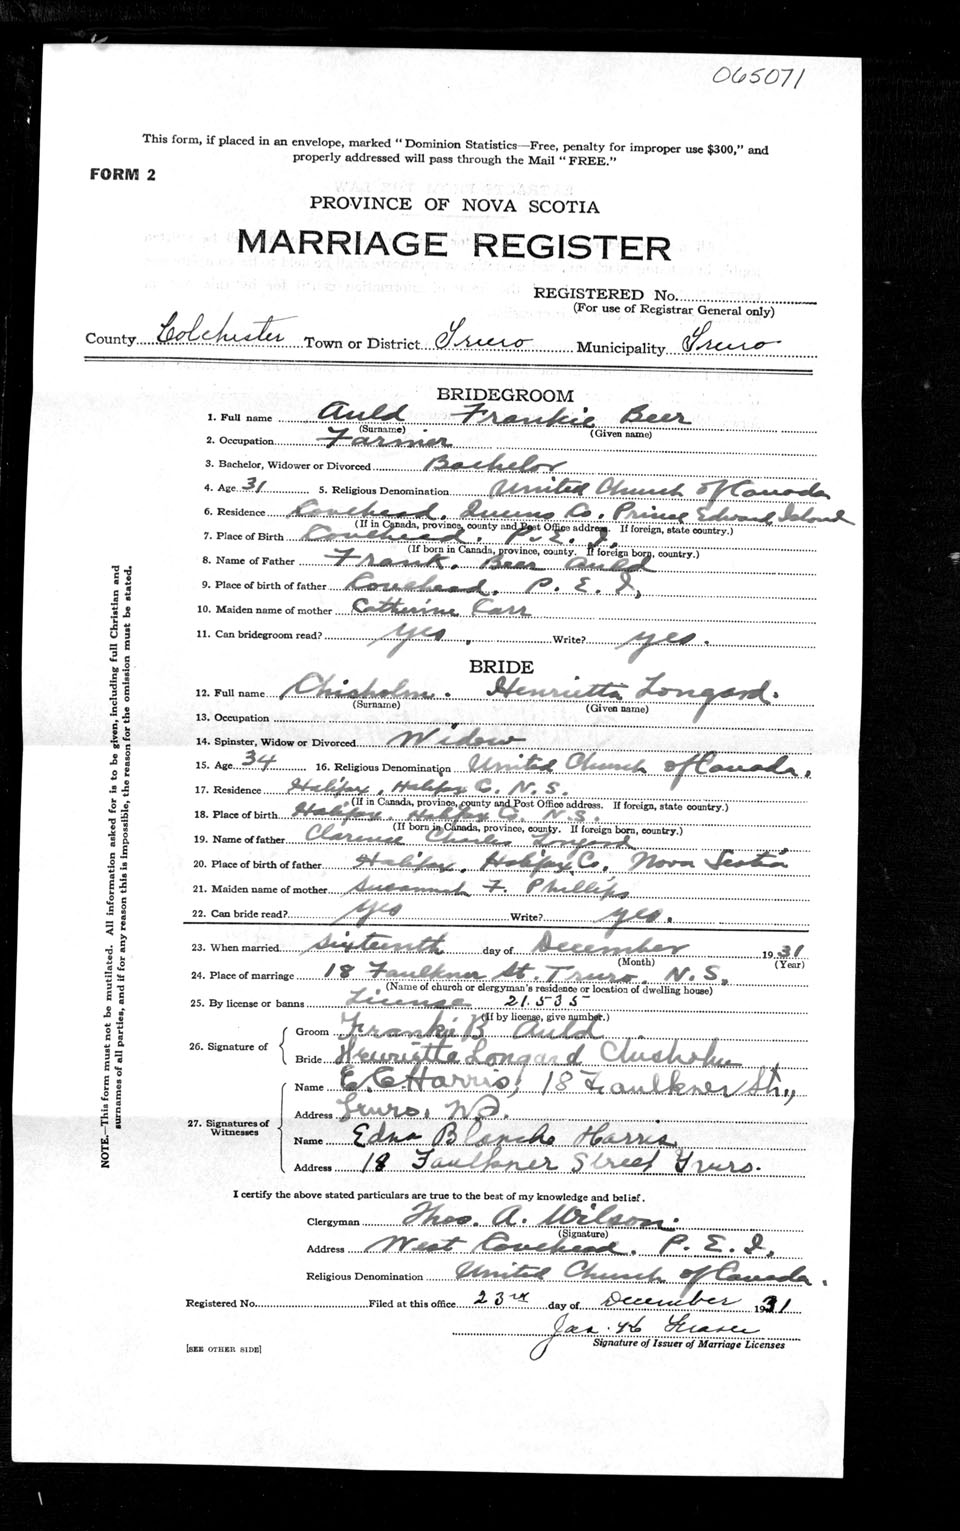 065071
This form, if placed in an envelope, marked "Dominion Statistics—Free, penalty for improper use $300," and
properly addressed will pass through the Mail "FREE."
FORM 2
PROVINCE OF NOVA SCOTIA
MARRIAGE REGISTER
REGISTERED No.
(For use of Registrar General only)
County Colchester Town or District Truro Municipality Truro
BRIDEGROOM
1. Full name Auld Frankie Beer
(Surname) (Given name)
2. Occupation Farmer
3. Bachelor, Widower or Divorced Bachelor
4. Age 31 5. Religious Denomination United Church of Canada
6. Residence Covehead, Queens Co. Prince Edward Island
(If in Canada, province, county and Post Office address. If foreign, state country.)
7. Place of Birth Covehead, P. E. I,
(If born in Canada, province, county. If foreign born, country.)
8. Name of Father Frank Beer Auld
9. Place of birth of father Covehead, P. E. I,
10. Maiden name of mother Catherine Carr
11. Can bridegroom read? yes, Write? yes.
BRIDE
12. Full name Chisholm. Henrietta Longard.
(Surname) (Given name)
13. Occupation
14. Spinster, Widow or Divorced Widow
15. Age 34 16. Religious Denomination United Church of Canada,
17. Residence Halifax, Halifax C. N. S.
(If in Canada, province, county and Post Office address. If foreign, state country.)
18. Place of birth Halifax, Halifax C. N.S.
(If born in Canada, province, county. If foreign born, country.)
19. Name of father Clarence Charles Longard
20. Place of birth of father Halifax, Halifax Co, Nova Scotia
21. Maiden name of mother Susannah F. Phillips
22. Can bride read? yes Write? yes.
23. When married sixteenth day of December 1931
(Month) (Year)
24. Place of marriage 18 Faulkner St. Truro, N. S,
(Name of church or clergyman's residence or location of dwelling house)
25. By license or banns License 21535
(If by license, give number.)
26. Signature of
Groom Frankie B Auld
Bride Henrietta Longard Chisholm
27. Signatures of Witnesses
Name E. C Harris, 18 Faulkner St.,
Address Truro, N.S.
Name Edna Blanche Harris
Address 18 Faulkner Street Truro.
I certify the above stated particulars are true to the best of my knowledge and belief.
Clergyman Thos. A. Wilson.
(Signature)
Address West Covehead, P. E. I,
Religious Denomination United Church of Canada.
Registered No. Filed at this office 23rd day of December 1931
Jas. Fraser
Signature of Issuer of Marriage Licenses
[SEE OTHER SIDE]
NOTE.—This form must not be mutilated. All information asked for is to be given, including full Christian and
surnames of all parties, and if for any reason this is impossible, the reason for the omission must be stated.